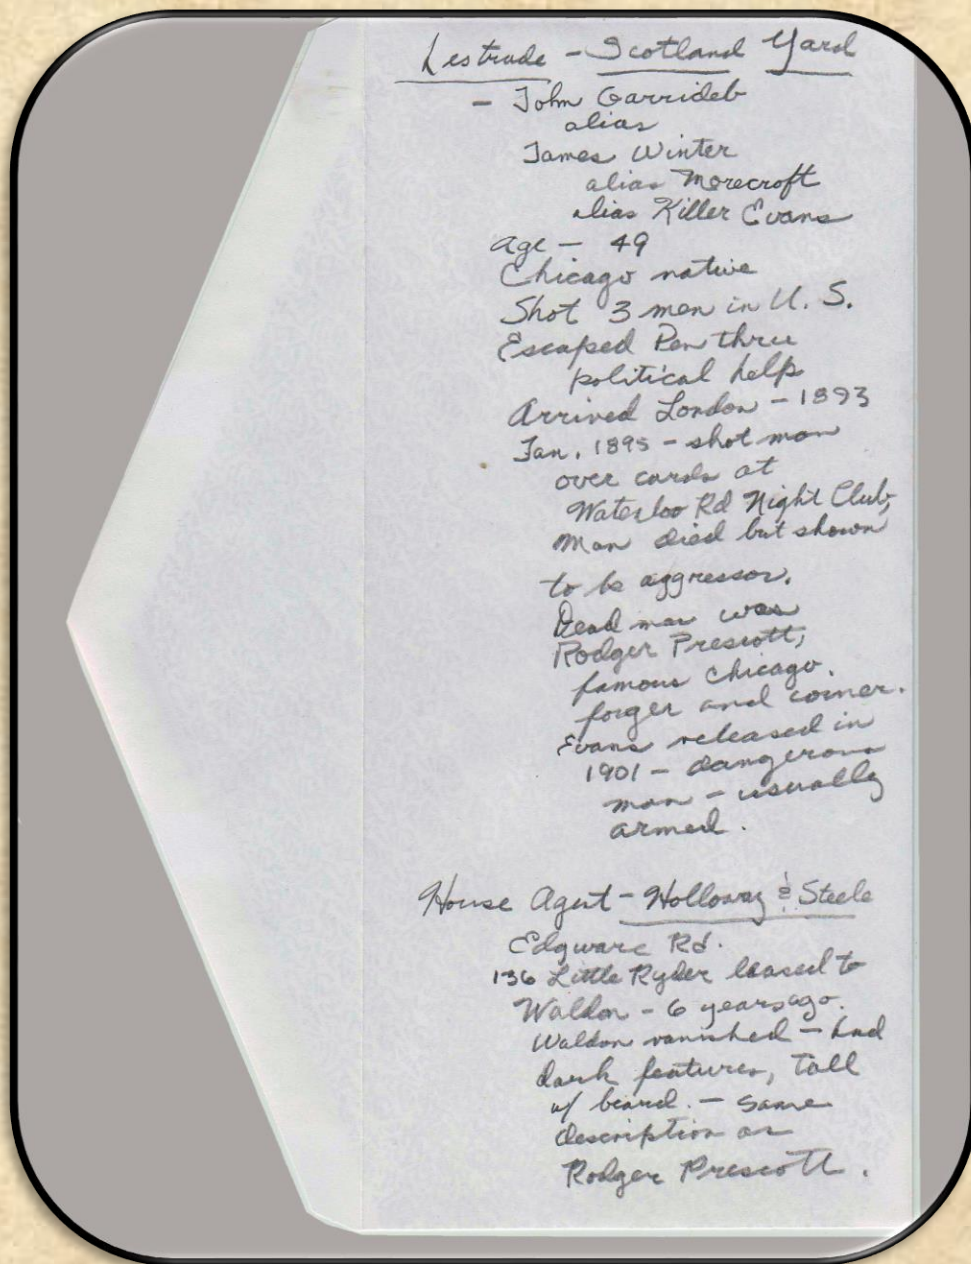 Lestrade - Scotland Yard
- John Garrideb
alias
James Winter
alias Morecroft
alias Killer Evans
Age - 49
Chicago native
Shot 3 men in U. S.
Escaped Pen thru
political help
Arrived London - 1893
Jan. 1895 - shot man
over cards at
Waterloo Rd Night Club,
Man died but shown
to be aggressor.
Dead man was
Rodger Prescott,
famous Chicago
forger and coiner.
Evans released in
1901 - dangerous
man - usually
armed.
House Agent - Holloway & Steele
Edgware Rd.
136 Little Ryder leased to
Waldon - 6 years ago.
Waldon vanished - had
dark features, tall
w/ beard. - same
description as
Rodger Prescott.